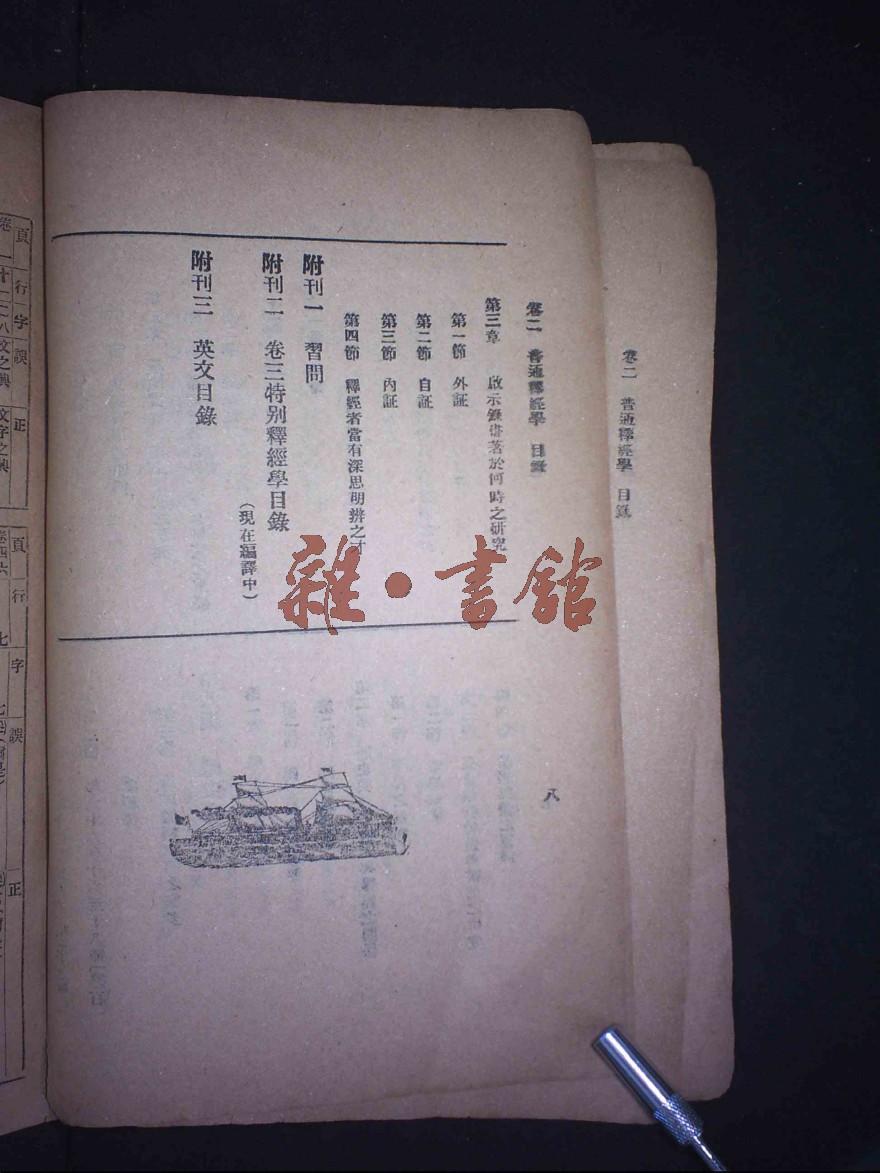 卷二 普通釋經學 目錄
卷二 普通釋經學 目錄
第三章 啟示錄書著於何時之研究
第一節 外証
第二節 自証
第三節 內証
第四節 釋經者當有深思明辨之才
附刊一 習問
附刊二 卷三特別釋經學目錄
（現在編譯中）
附刊三 英文目錄
八
雜·書館
頁 行 字 誤 正
頁 行 字 誤 正